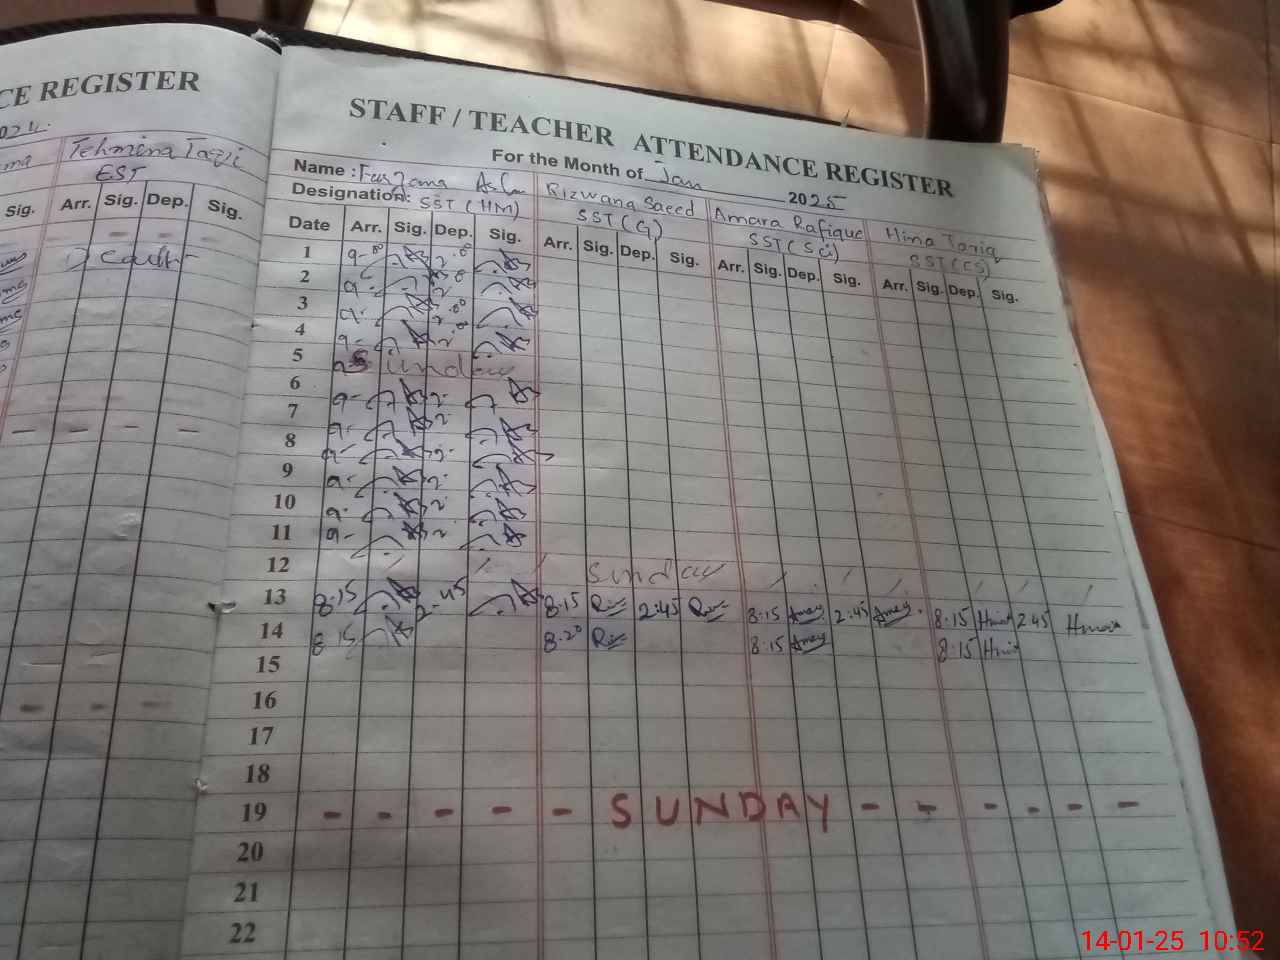 CE REGISTER
Tehmina Taqi
EST
Sig. Arr. Sig. Dep. Sig.
STAFF / TEACHER ATTENDANCE REGISTER
For the Month of Jan 2025
Name : Rizwana Saeed Amara Rafique Hina Tariq
Designation: SST (HM) SST (G) SST (Sci) SST (CS)
Date Arr. Sig. Dep. Sig. Arr. Sig. Dep. Sig. Arr. Sig. Dep. Sig. Arr. Sig. Dep. Sig.
1 9-00 2-00
2 9- 2-00
3 9- 2-00
4 9- 2-00
5 Sunday
6 9- 2-
7 9- 2-
8 9- 2-
9 9- 2-
10 9- 2-
11 9- 2-
12 Sunday
13 8-15 2-45 8-15 2:45 8-15 2:45 8-15 Hina 2:45 Hina
14 8-15 8-20 8-15 8:15 Hina
15
16
17
18
19 - - - - - SUNDAY - - - - - -
20
21
22
14-01-25 10:52